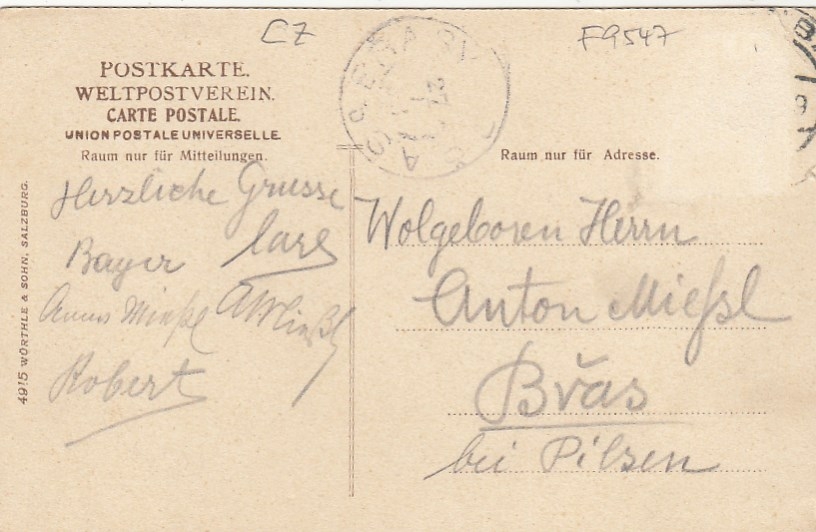 CZ
F9547
POSTKARTE.
WELTPOSTVEREIN.
CARTE POSTALE.
UNION POSTALE UNIVERSELLE.
Raum nur für Mitteilungen.
Raum nur für Adresse.
Herzliche Grüsse
Carl
Bayer
Robert
Wolgeboren Herrn
Anton Mießl
Břas
bei Pilsen
4915 WÜRTHLE & SOHN, SALZBURG.